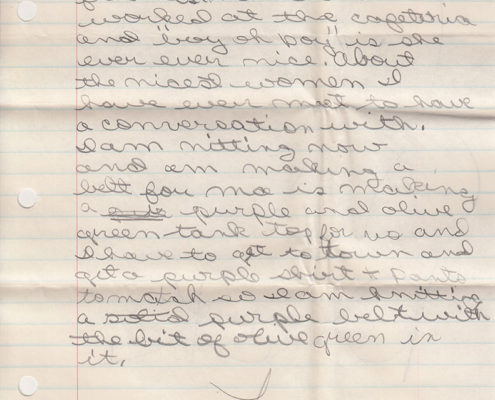 worked at the cafeteria
and "boy oh boy" is she
ever ever nice. About
the nicest women I
have ever meet to have
a conversation with.
I am nitting now
and am making a
belt for ma is making
a purple and olive
green tank top for us and
I have to get to town and
get a purple shirt + pants
to match so I am knitting
a purple belt with
the bit of olive green in
it.